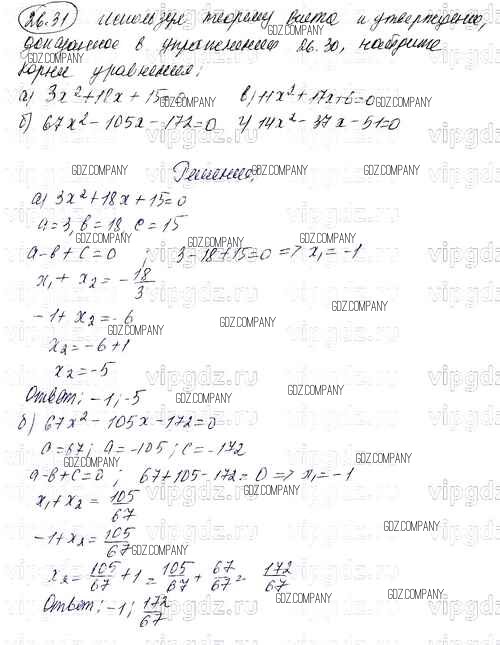 26.31 Используя теорему Виета и утверждение,
доказанное в упражнении 26.30, найдите
корни уравнения:
а) 3x² + 18x + 15 = 0 в) 11x² + 17x + 6 = 0
б) 67x² - 105x - 172 = 0 г) 14x² - 37x - 51 = 0
Решение:
а) 3x² + 18x + 15 = 0
a = 3, b = 18, c = 15
a - b + c = 0 ; 3 - 18 + 15 = 0 => x₁ = -1
x₁ + x₂ = - 18/3
-1 + x₂ = -6
x₂ = -6 + 1
x₂ = -5
Ответ: -1; -5
б) 67x² - 105x - 172 = 0
a = 67; a = -105; c = -172
a - b + c = 0 ; 67 + 105 - 172 = 0 => x₁ = -1
x₁ + x₂ = 105/67
-1 + x₂ = 105/67
x₂ = 105/67 + 1 = 105/67 + 67/67 = 172/67
Ответ: -1; 172/67